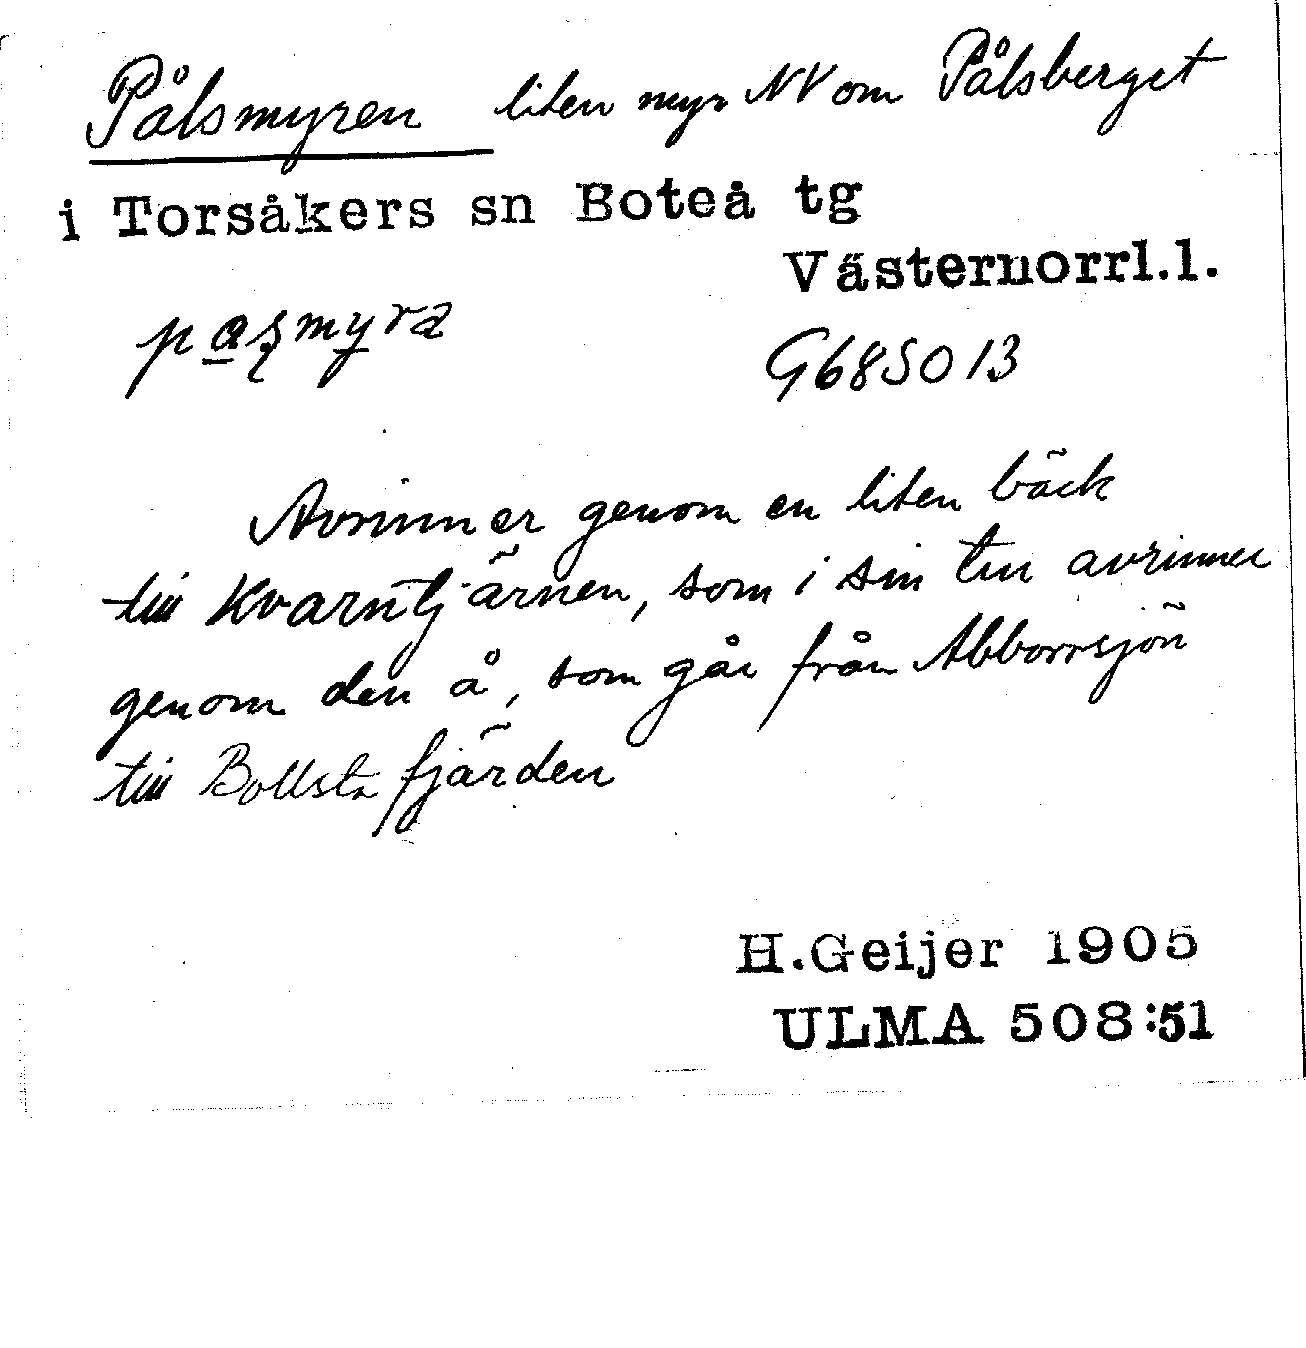 Pålsmyren liten myr NV om Pålsberget
i Torsåkers sn Boteå tg
Västernorrl.l.
G685013
Avrinner genom en liten bäck
till Kvarntjärnen, som i sin tur avrinner
genom den å, som går från Abborrsjön
till Bollstafjärden
H.Geijer 1905
ULMA 508:51